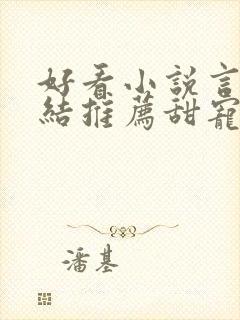 好看小說言
結推薦甜寵
潘基